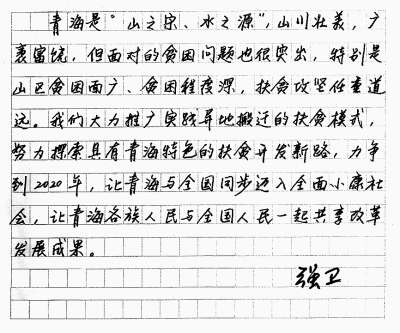 青海是“山之宗、水之源”，山川壮美，广
袤富饶，但面对的贫困问题也很突出，特别是
山区贫困面广、贫困程度深，扶贫攻坚任重道
远。我们大力推广实践异地搬迁的扶贫模式，
努力探索具有青海特色的扶贫开发新路，力争
到2020年，让青海与全国同步迈入全面小康社
会，让青海各族人民与全国人民一起共享改革
发展成果。
强卫